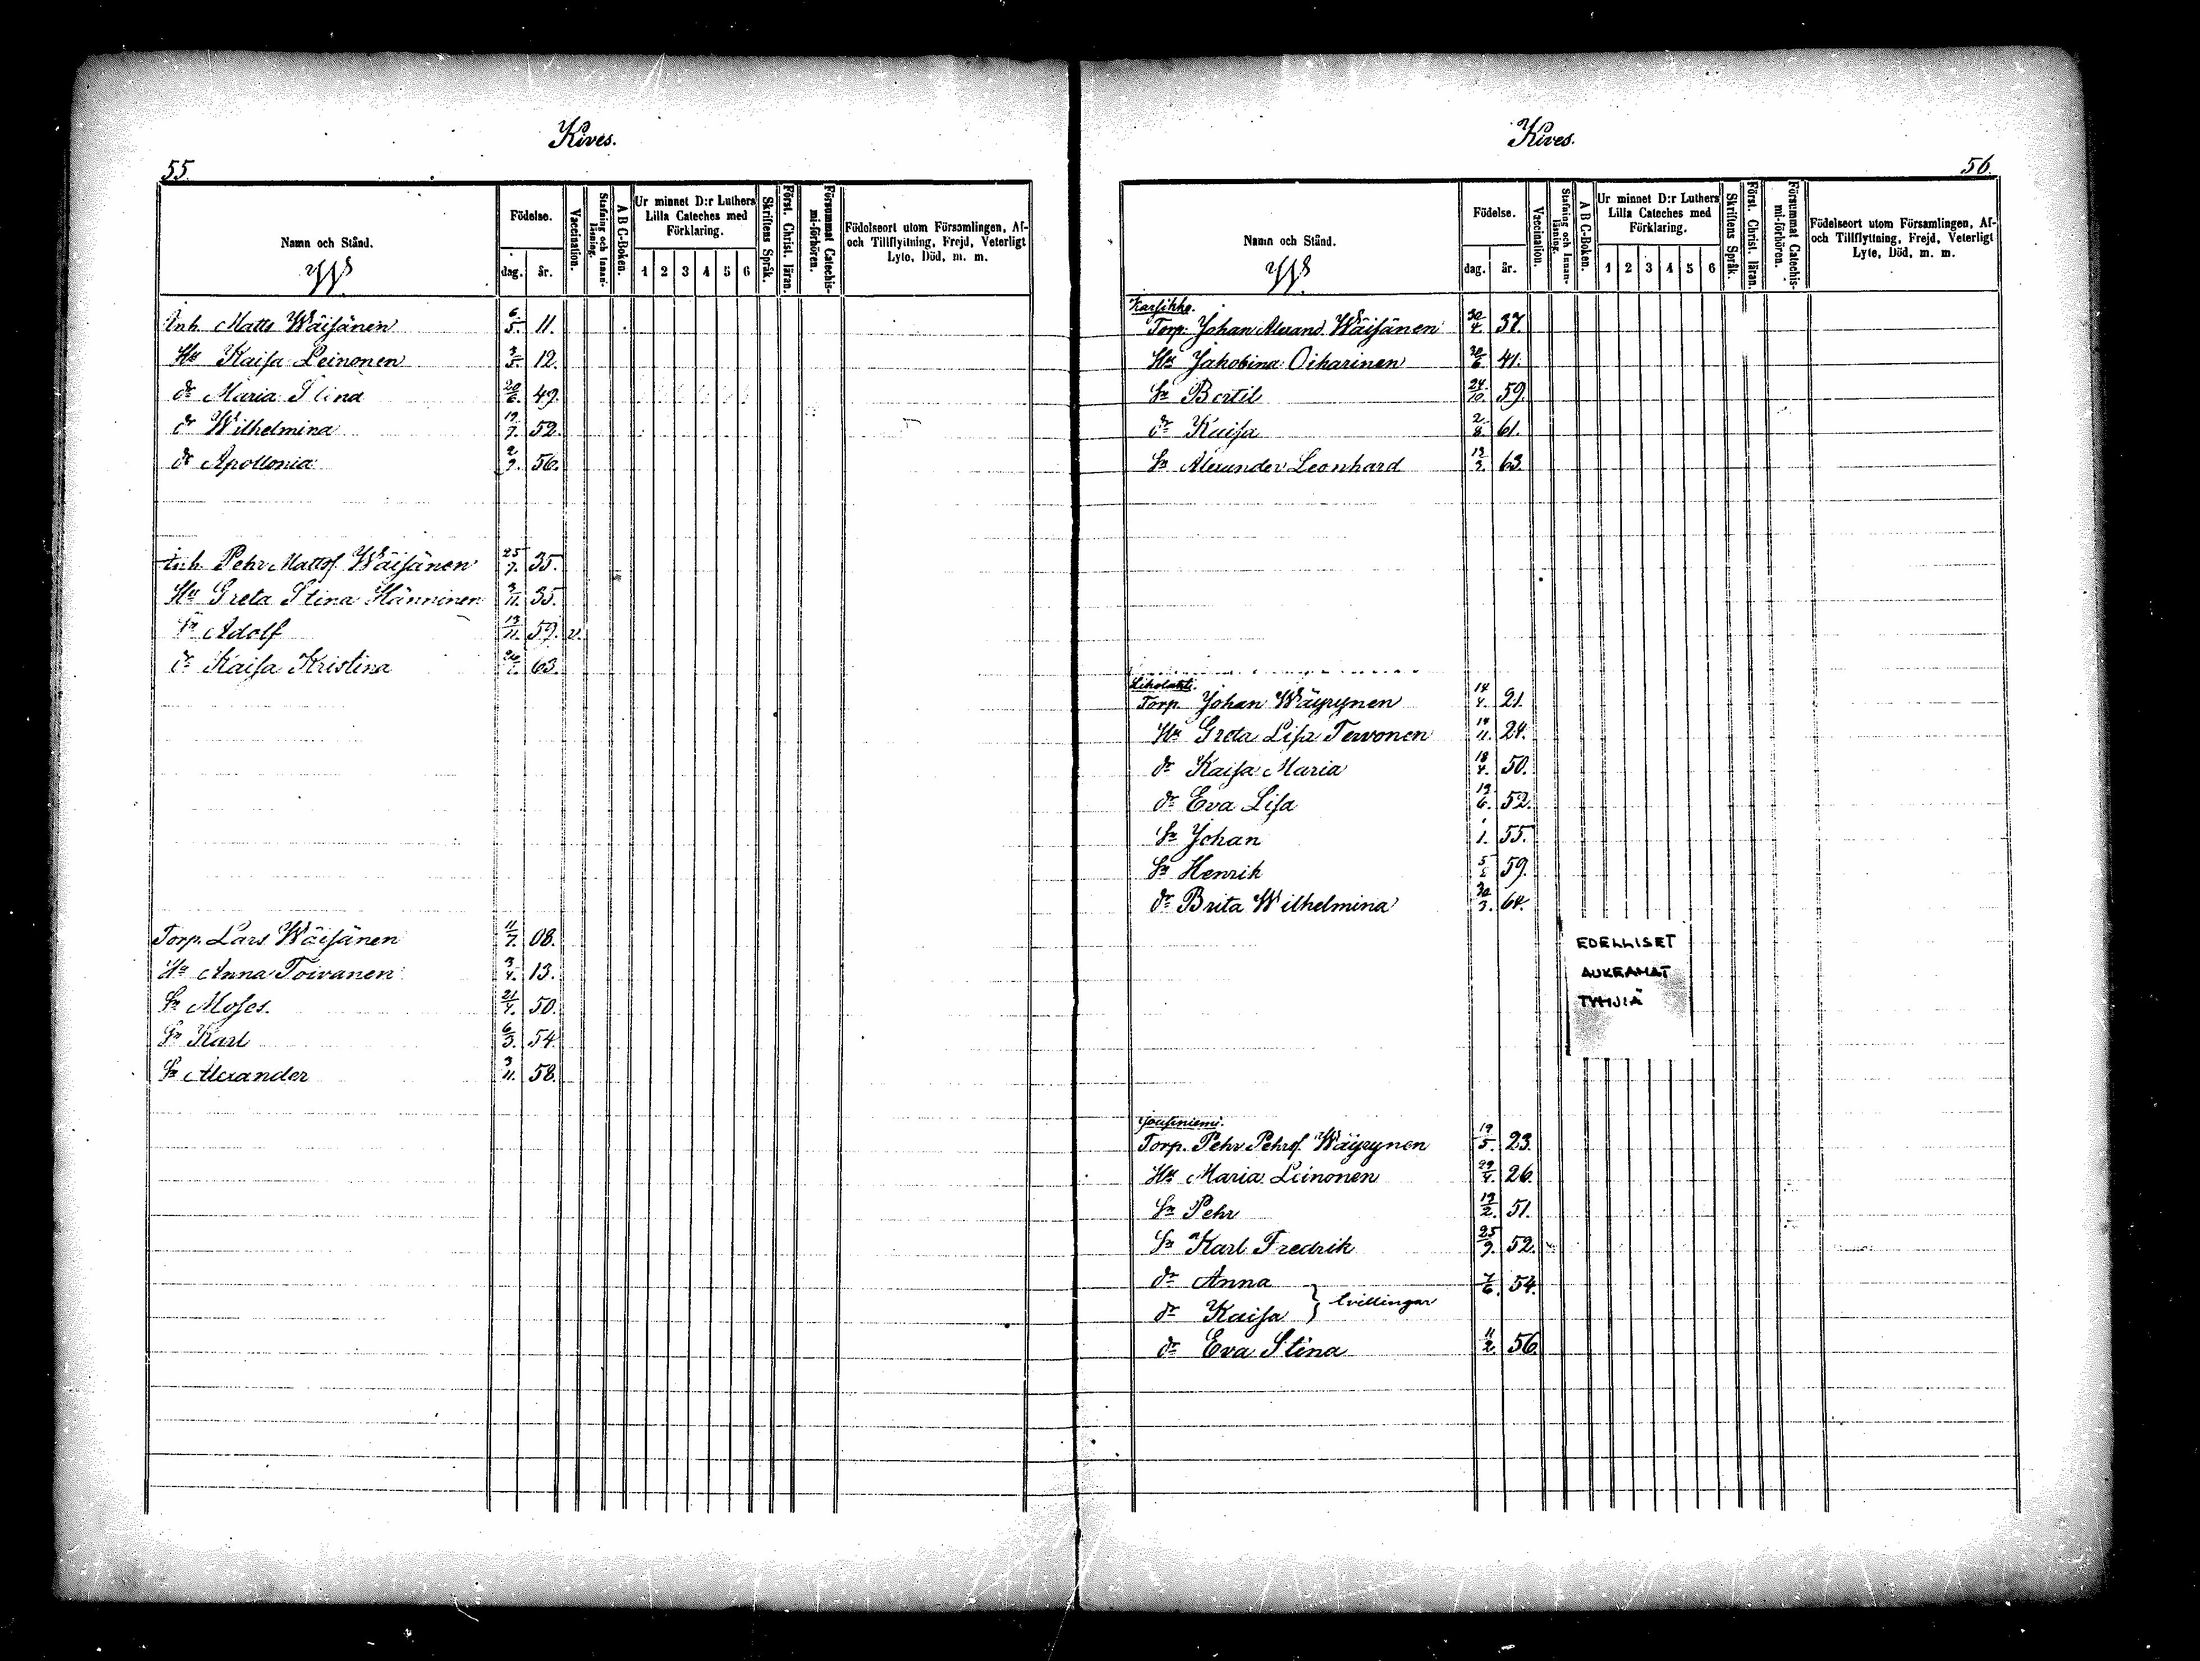 Kives.
55.
Namn och Stånd.
Födelse.
dag. år.
Vaccination.
Stafning och Innanläsning.
A B C-Boken.
Ur minnet D:r Luthers Lilla Cateches med Förklaring.
1 2 3 4 5 6
Skriftens Språk.
Först. Christ. läran.
Försummat Catechismi-förhören.
Födelseort utom Församlingen, Af- och Tillflyttning, Frejd, Veterligt Lyte, Död, m. m.
Inh. Matts Wäisänen 6/5. 11.
Hu Kaisa Leinonen 3/5. 12.
dr Maria Stina 20/6. 49.
dr Wilhelmina 19/7. 52.
dr Apollonia 2/9. 56.
Inh. Pehr Mattsf Wäisänen 25/7. 35.
Hu Greta Stina Hänninen 3/11. 35.
Sn Adolf 13/11. 59. v.
dr Kaisa Kristina 63.
Torp. Lars Wäisänen 11/7. 08.
Hu Anna Toivanen 3/4. 13.
Sn Moses. 21/4. 50.
Sn Karl 6/3. 54.
Sn Alexander 3/11. 58.
Kives.
56.
Namn och Stånd.
Födelse.
dag. år.
Vaccination.
Stafning och Innanläsning.
A B C-Boken.
Ur minnet D:r Luthers Lilla Cateches med Förklaring.
1 2 3 4 5 6
Skriftens Språk.
Först. Christ. läran.
Försummat Catechismi-förhören.
Födelseort utom Församlingen, Af- och Tillflyttning, Frejd, Veterligt Lyte, Död, m. m.
Karsikko.
Torp. Johan Alexand. Wäisänen 30/4. 37.
Hu Jakobina Oikarinen 30/6. 41.
Sn Bertil 24/10. 59.
dr Kaisa 2/8. 61.
Sn Alexander Leonhard 12/3. 63.
Torp. Johan Wäyrynen 14/4. 21.
Hu Greta Lisa Tervonen 14/11. 24.
dr Kaisa Maria 18/4. 50.
dr Eva Lisa 19/6. 52.
Sn Johan 1/1. 55.
Sn Henrik 59.
dr Brita Wilhelmina 30/3. 64.
EDELLISET
AUKEAMAT
TYHJIÄ
Torp. Pehr Pehrsf. Wäyrynen 19/5. 23.
Hu Maria Leinonen 29/4. 26.
Sn Pehr 19/2. 51.
Sn Karl Fredrik 25/9. 52.
dr Anna 7/6. 54.
dr Kaisa } tvillingar
dr Eva Stina 11/2. 56